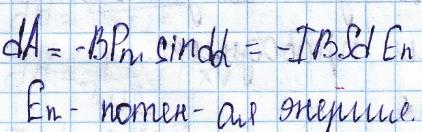 dA = -BPm sindα = -IBSd En
En - потен-ая энергия.